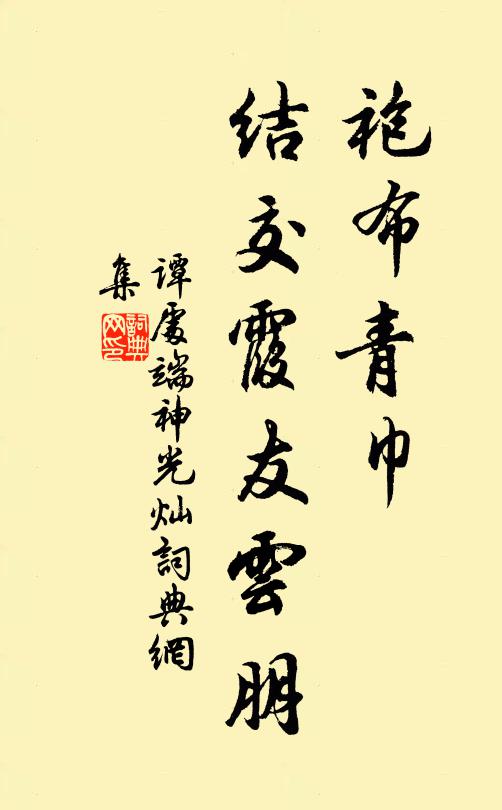 袍布青巾
结交霞友雲朋
譚處端神光灿詞典網
集
詞典
网印